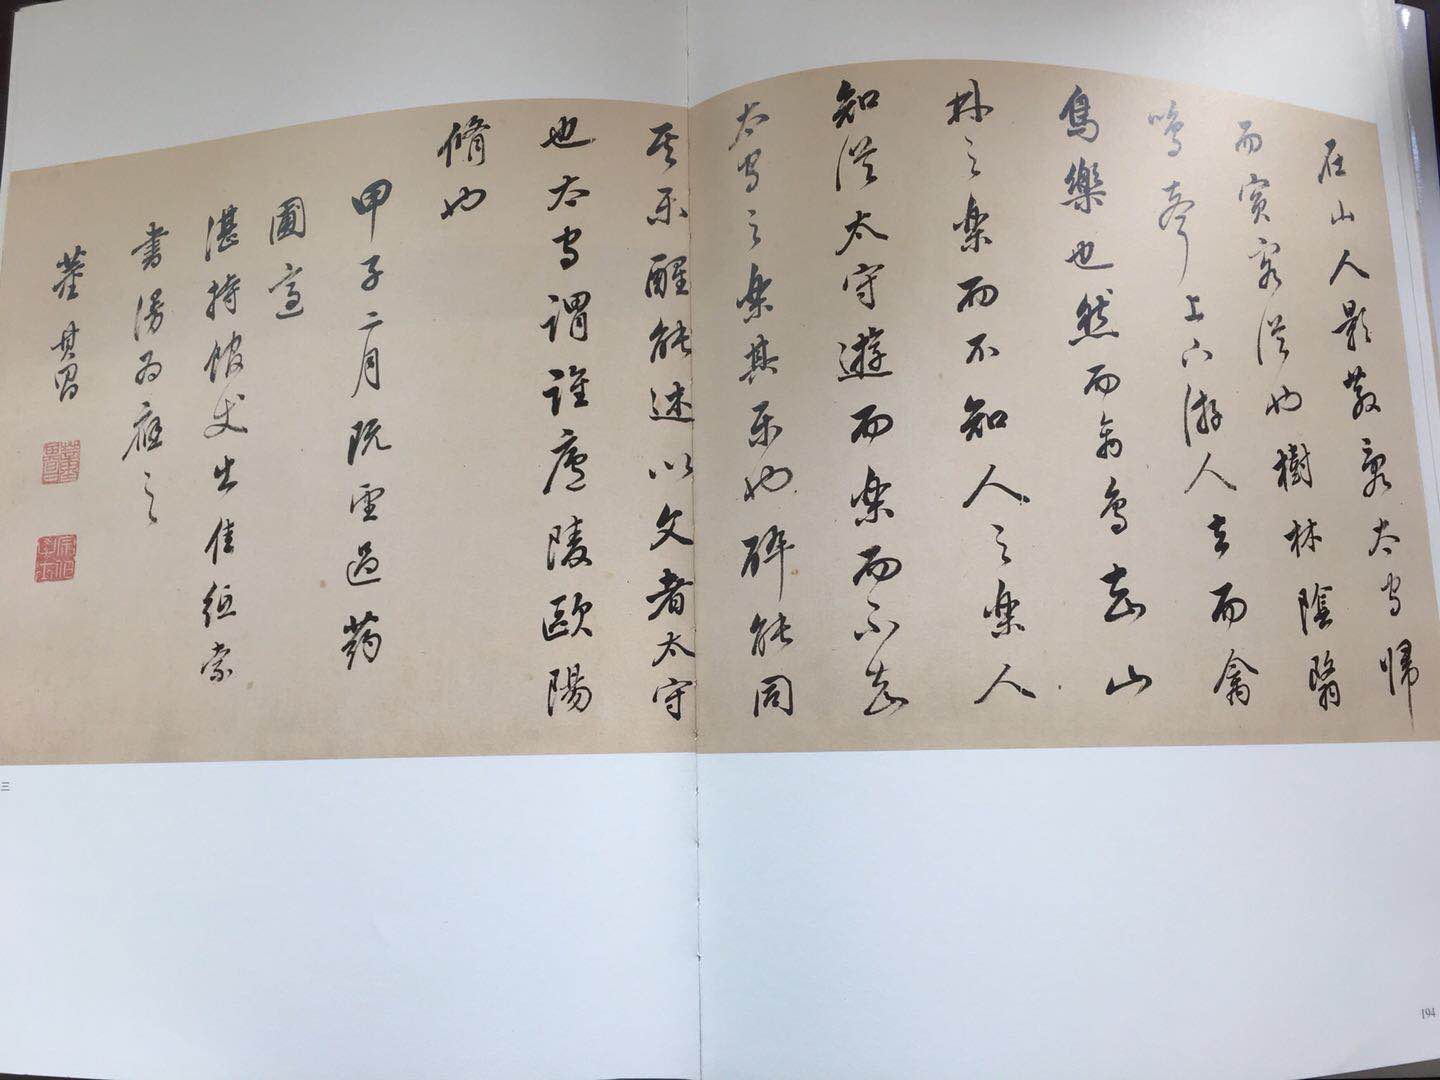 在山人影散亂太守歸
而賓客從也樹林陰翳
鳴聲上下游人去而禽
鳥樂也然而禽鳥知山
林之樂而不知人之樂人
知從太守遊而樂而不知
太守之樂其樂也醉能同
其樂醒能述以文者太守
也太守謂誰廬陵歐陽
脩也
甲子二月既望過藥
圃適
湛持館丈出佳紙索
書漫為應之
董其昌
三
194